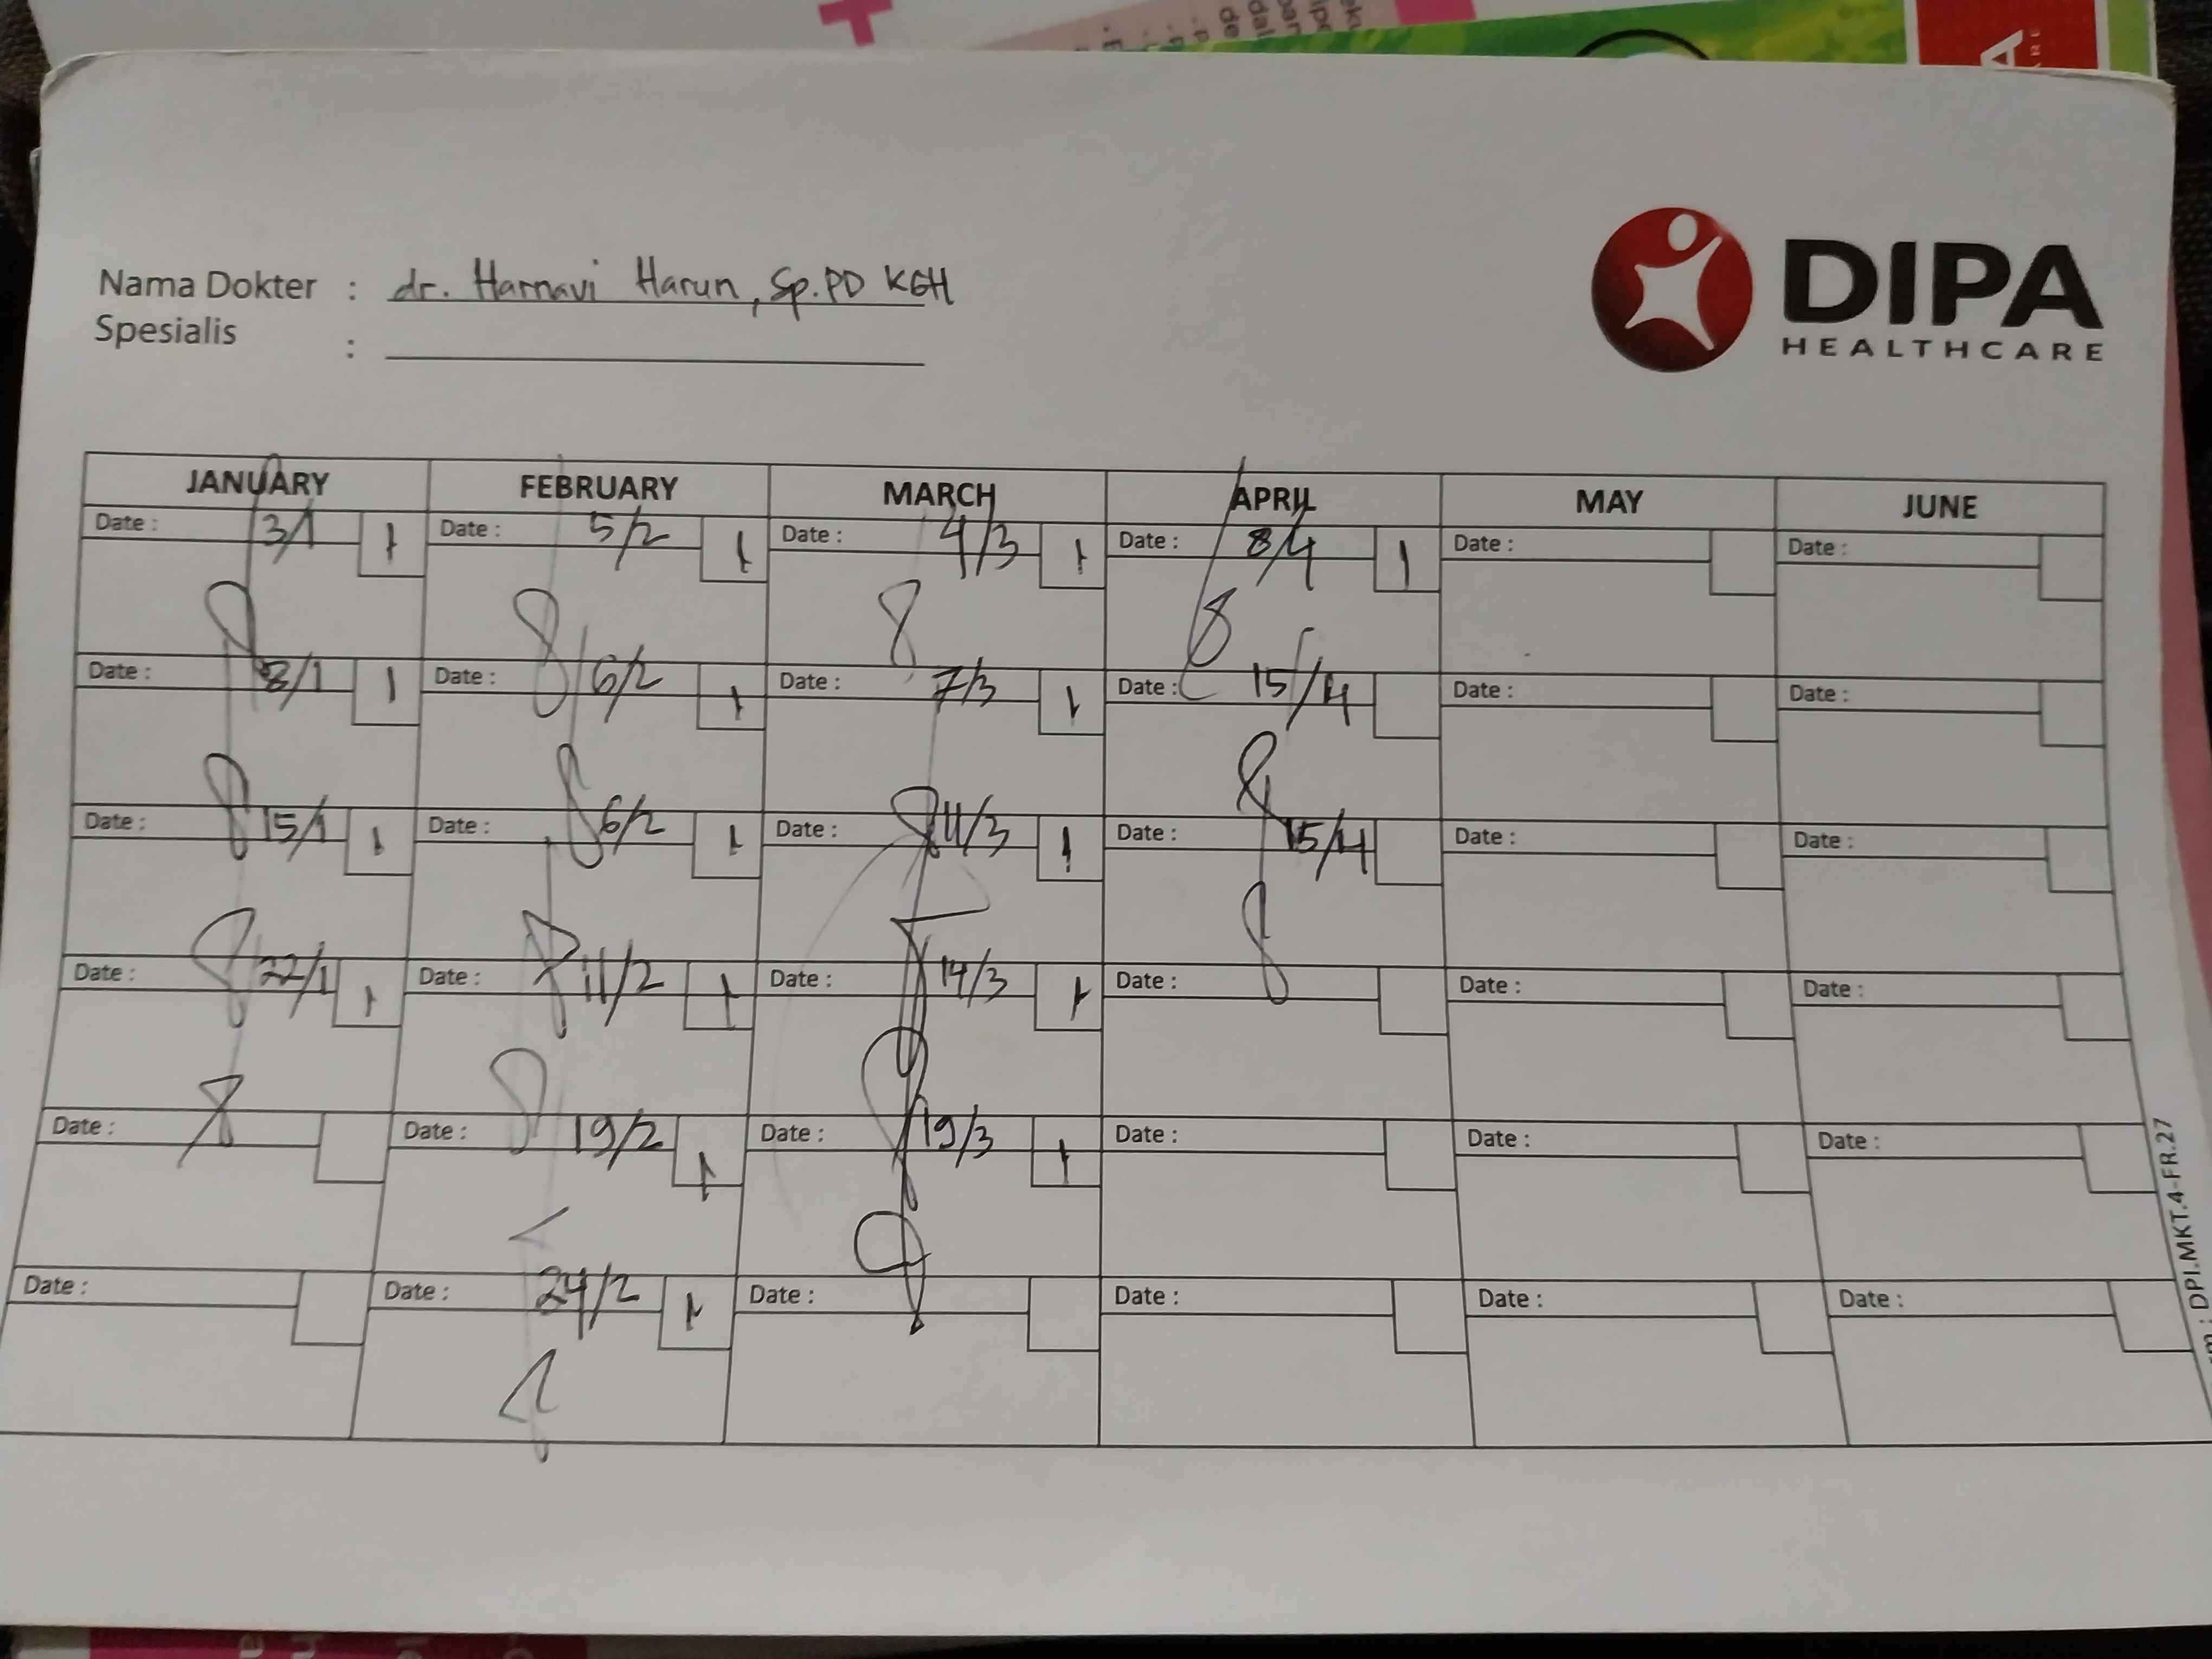 Nama Dokter : dr. Harnavi Harun, Sp.PD KGH
Spesialis :
DIPA
HEALTHCARE
JANUARY FEBRUARY MARCH APRIL MAY JUNE
Date : 3/1 1 Date : 5/2 1 Date : 4/3 1 Date : 8/4 1 Date : Date :
Date : 8/1 1 Date : 6/2 1 Date : 7/3 1 Date : 15/4 Date : Date :
Date : 15/1 1 Date : 6/2 1 Date : 11/3 1 Date : 15/4 Date : Date :
Date : 22/1 1 Date : 11/2 1 Date : 14/3 1 Date : Date : Date :
Date : Date : 19/2 1 Date : 19/3 1 Date : Date : Date :
Date : Date : 24/2 1 Date : Date : Date : Date :
: DPI.MKT.4-FR.27